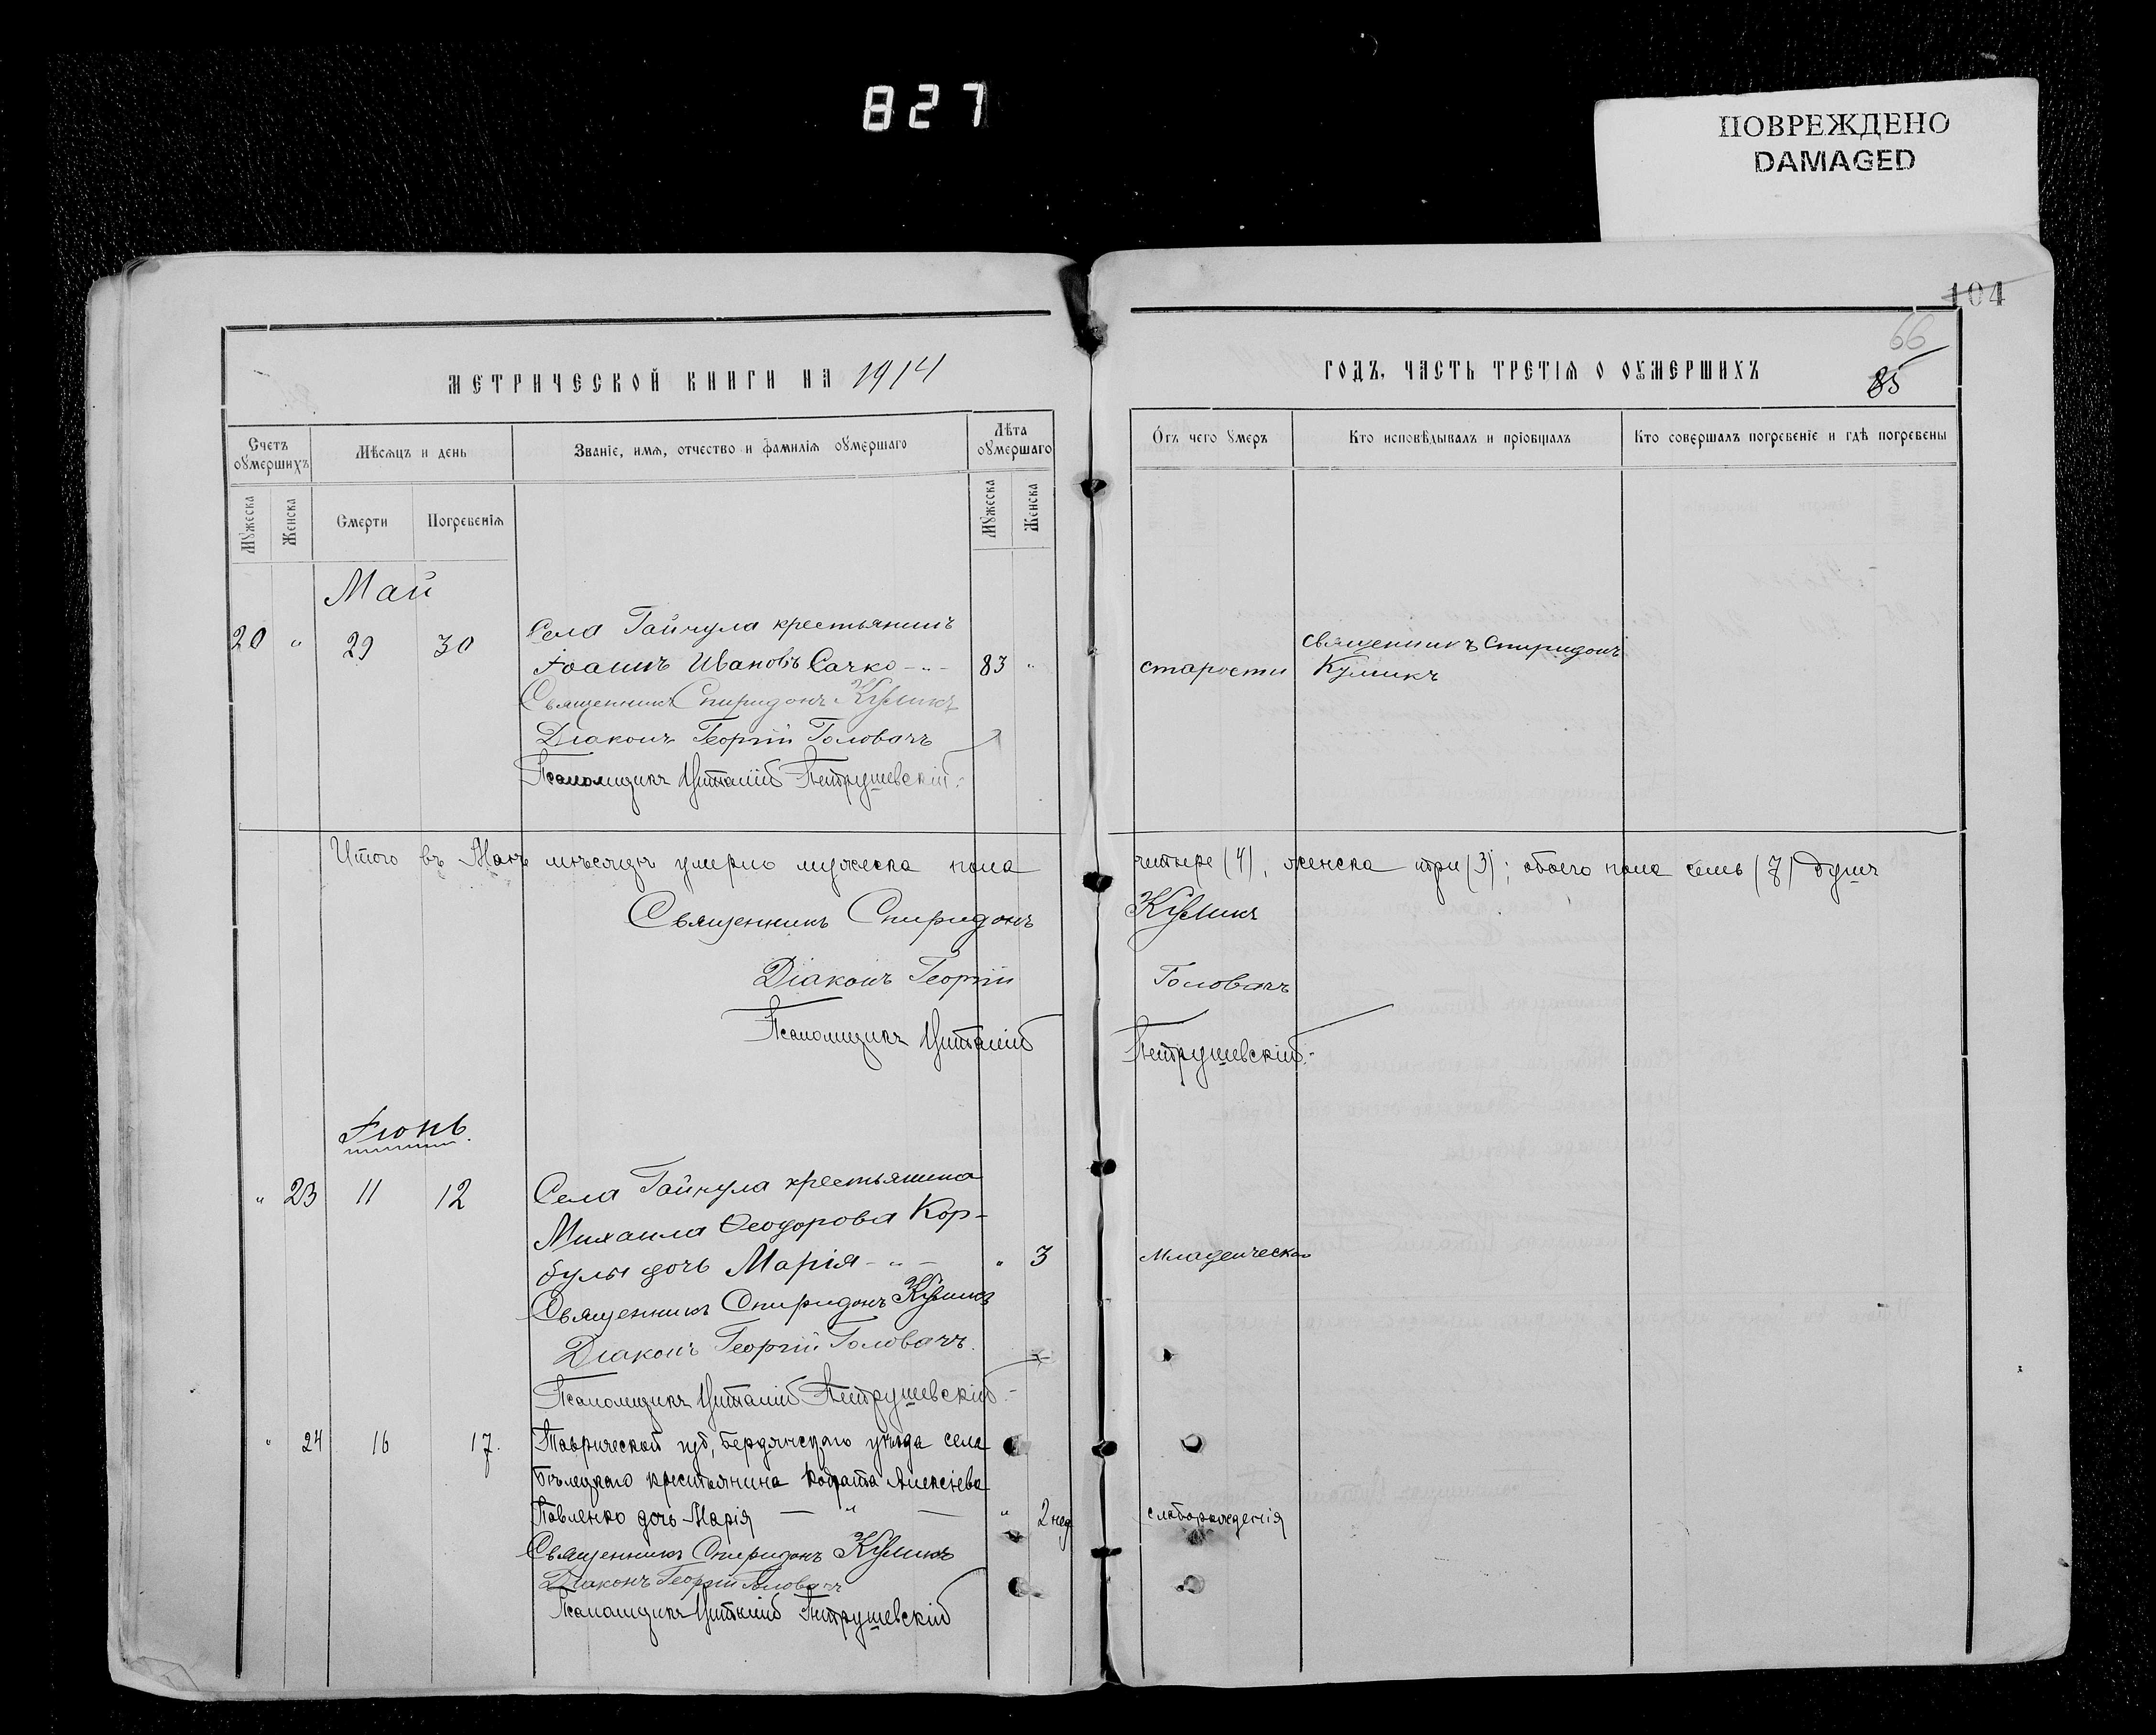 827
ПОВРЕЖДЕНО
DAMAGED
104
66
85
МЕТРИЧЕСКОЙ КНИГИ НА 1914
ГОДЪ, ЧАСТЬ ТРЕТІѦ О ОУМЕРШИХЪ
Счетъ оумершихъ
Мѣсѧцъ и день
Званіе, имѧ, отчество и фамиліѧ оумершаго
Лѣта оумершаго
Отъ чего умеръ
Кто исповѣдывалъ и пріобщалъ
Кто совершалъ погребеніе и гдѣ погребены
Мужеска
Женска
Смерти
Погребеніѧ
Мужеска
Женска
Май
20 " 29 30 Села Гайчула крестьянинъ
Іоаннъ Ивановъ Сачко - " - 83 " старости
Священникъ Спиридонъ
Куликъ
Священникъ Спиридонъ Куликъ
Діаконъ Георгій Головачъ
Псаломщикъ Виталій Петрушевскій.
Итого въ Маѣ мѣсяцѣ умерло мужеска пола четыре (4), женска три (3); обоего пола семь (7) душъ
Священникъ Спиридонъ Куликъ
Діаконъ Георгій Головачъ
Псаломщикъ Виталій Петрушевскій.
Іюнь.
" 23 11 12 Села Гайчула крестьянина
Михаила Ѳеодорова Кор-
булы дочь Марія - " - " 3 младенческ.
Священникъ Спиридонъ Куликъ
Діаконъ Георгій Головачъ.
Псаломщикъ Виталій Петрушевскій.
" 24 16 17. Таврической губ, Бердянскаго уѣзда села
крестьянина Кодрата Алексѣева
Павленко дочь Марія — " — " 2 нед слаборожденія
Священникъ Спиридонъ Куликъ
Діаконъ Георгій Головачъ
Псаломщикъ Виталій Петрушевскій